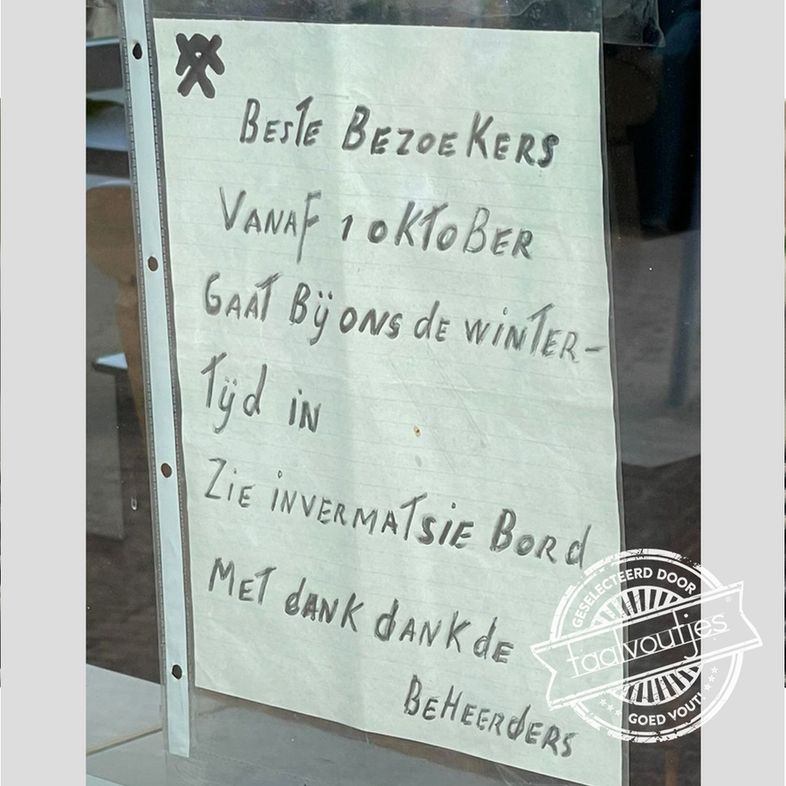 BESTE BEZOEKERS
VANAF 1 OKTOBER
GAAT BIJ ONS DE WINTER-
TIJD IN
ZIE INVERMATSIE BORD
MET DANK DANK DE
BEHEERDERS
GESELECTEERD DOOR
taalvoutjes
GOED VOUT!